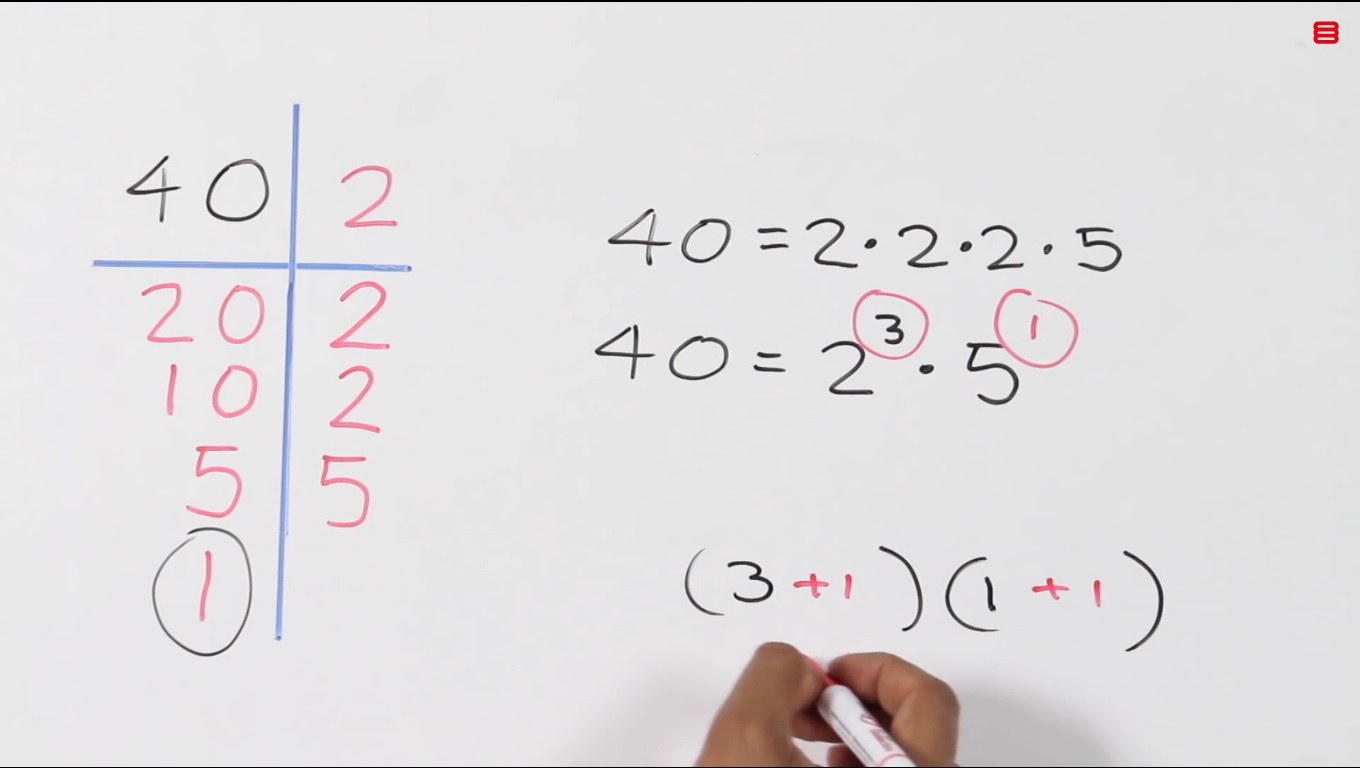 40 2
20 2
10 2
5 5
1
40 = 2 · 2 · 2 · 5
40 = 2³ · 5¹
(3 + 1) (1 + 1)